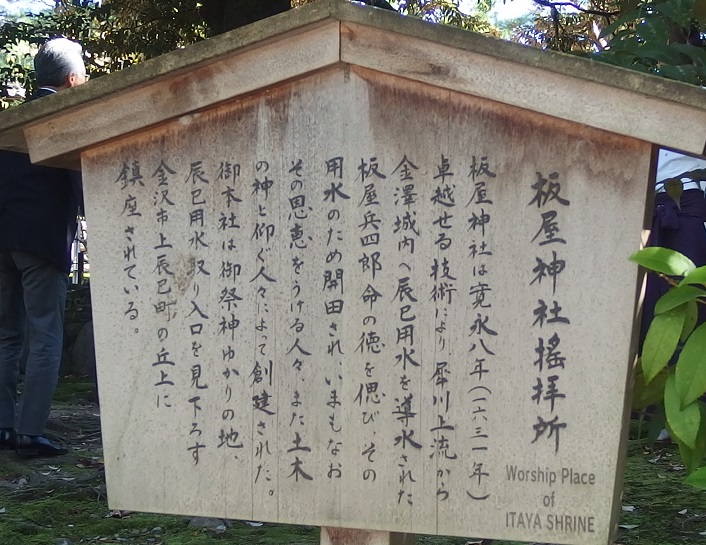 板屋神社搖拝所
板屋神社は寛永八年(一六三一年)
卓越せる技術により、犀川上流から
金澤城内へ辰巳用水を導水された
板屋兵四郎命の徳を偲び、その
用水のため開田され、いまもなお
その恩恵をうける人々、また土木
の神と仰ぐ人々によって創建された。
御本社は御祭神ゆかりの地、
辰巳用水取り入口を見下ろす
金沢市上辰巳町の丘上に
鎮座されている。
Worship Place
of
ITAYA SHRINE